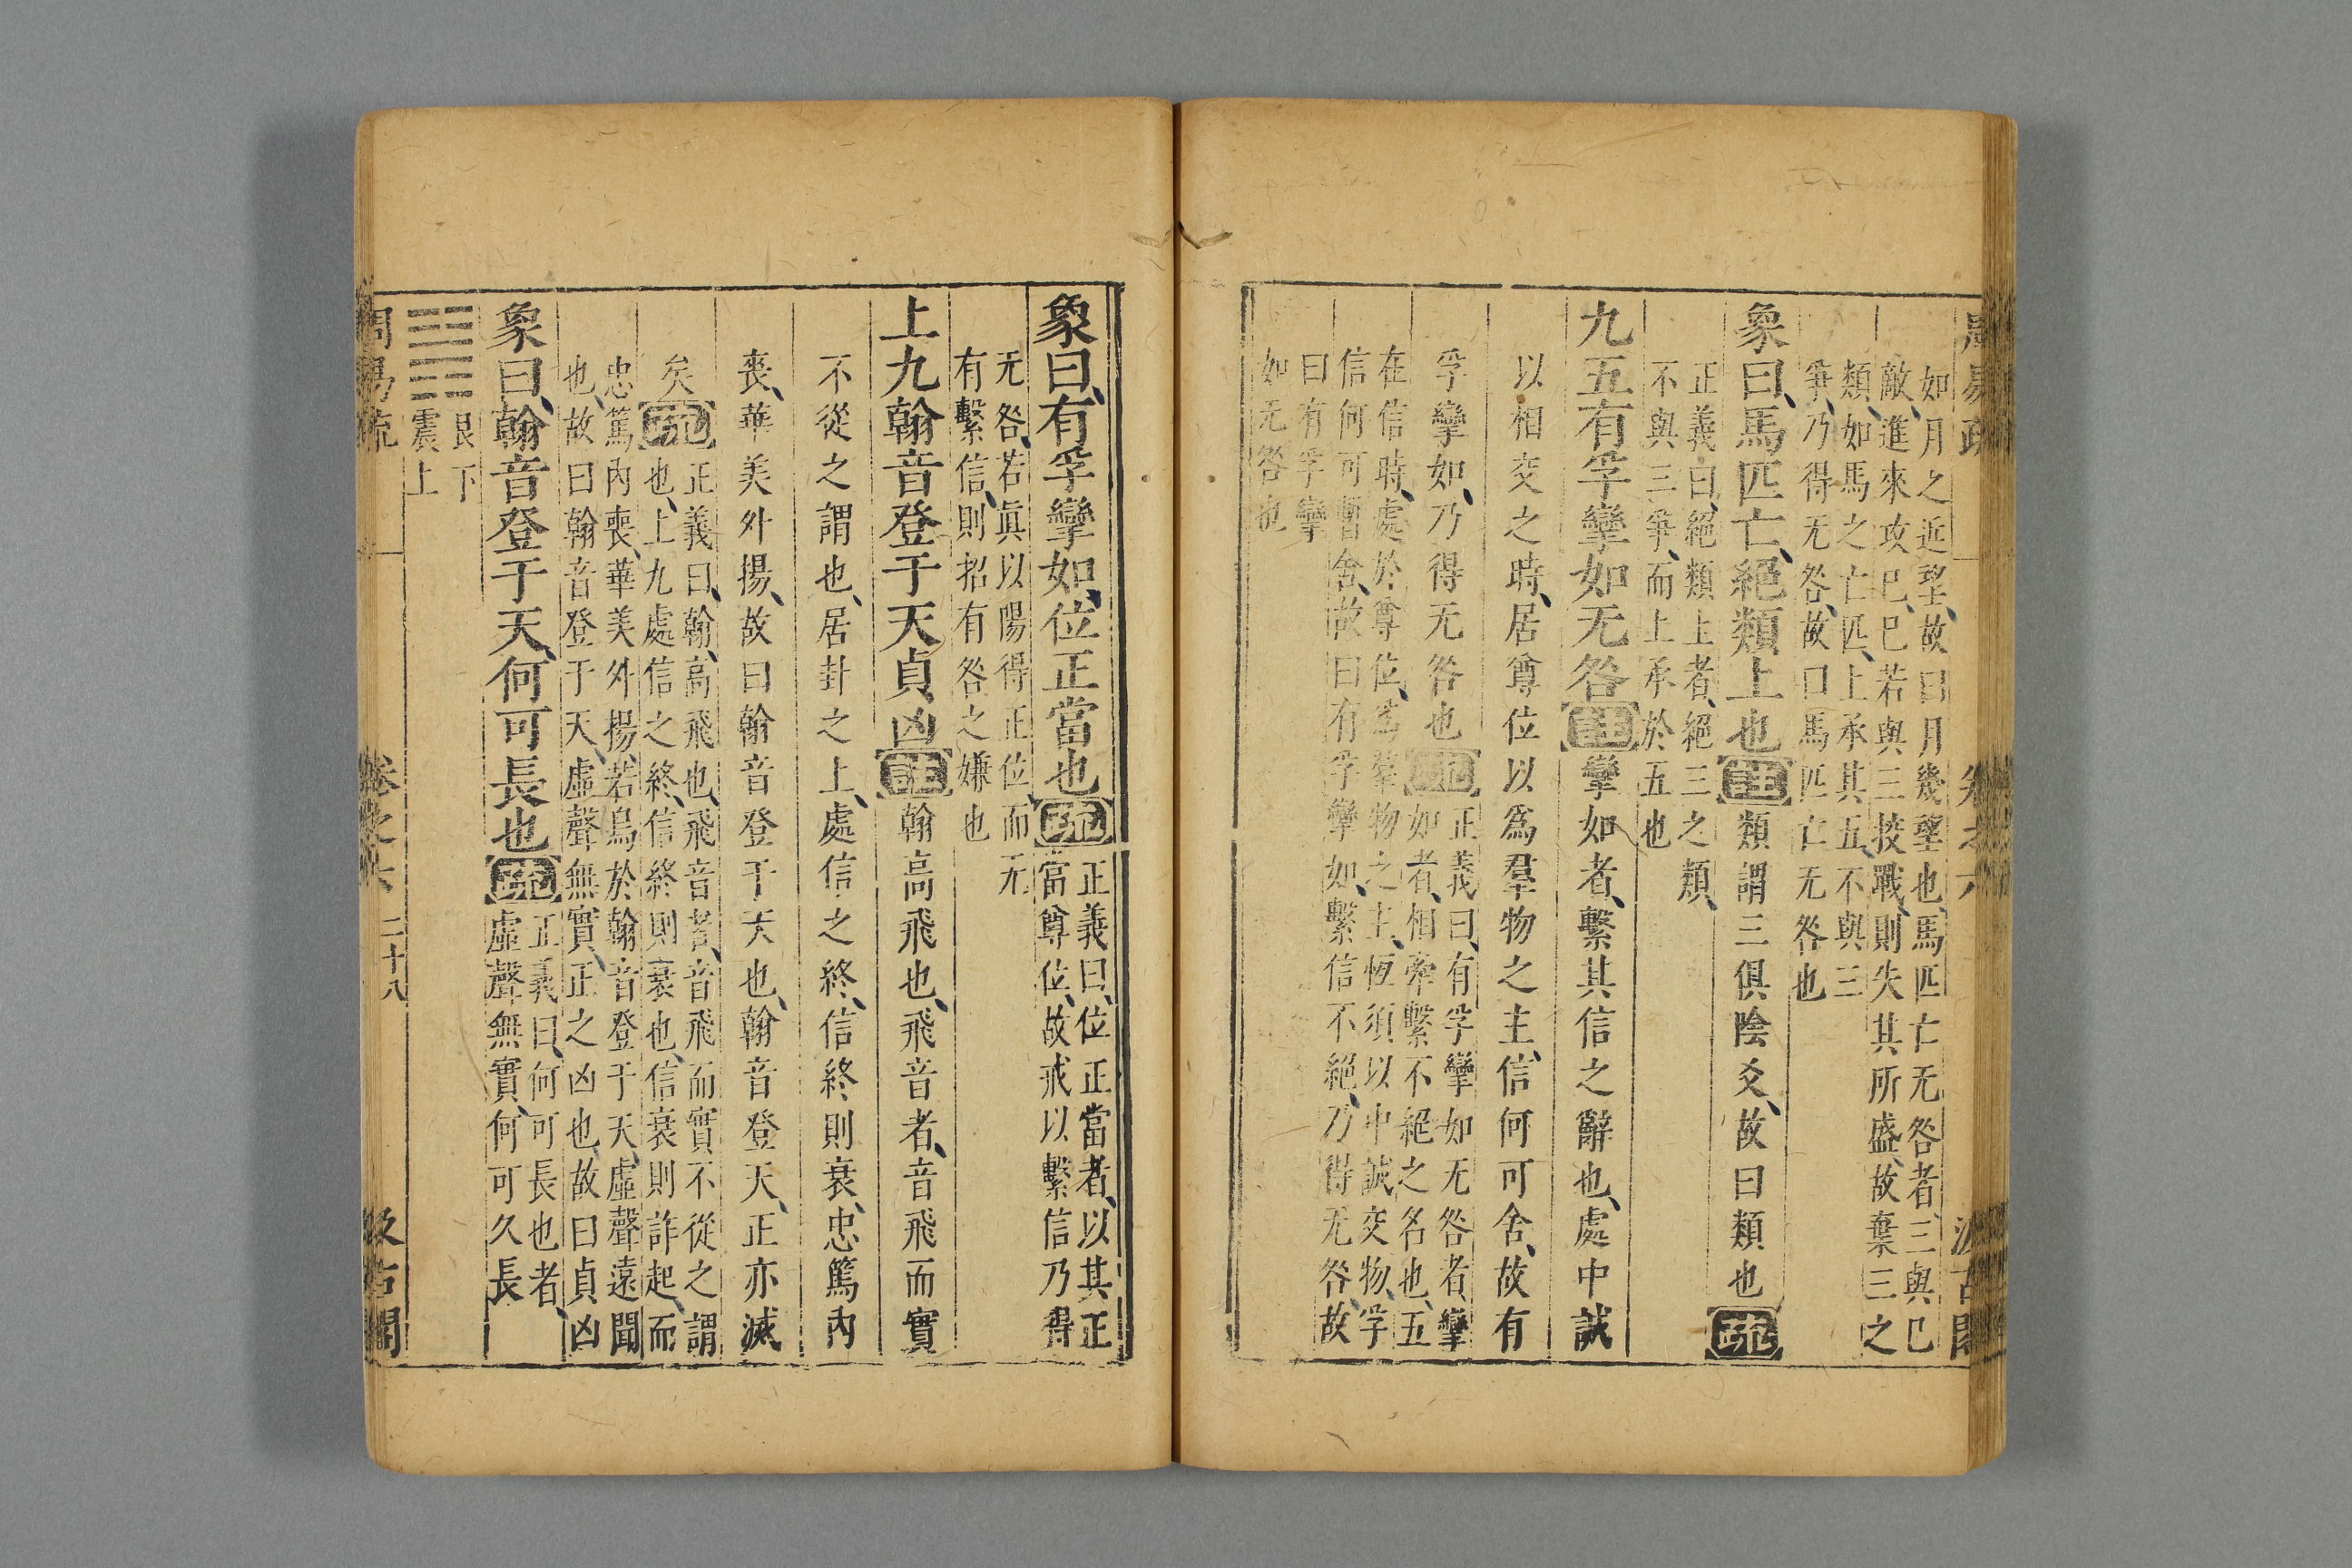 如月之近望、故曰月幾望也、馬匹亡无咎者、三與已
敵、進來攻已、已若與三挍戰、則失其所盛、故棄三之
類、如馬之亡匹、上承其五、不與三
爭、乃得无咎、故曰馬匹亡无咎也
象曰、馬匹亡、絕類上也 註 類謂三俱陰爻、故曰類也 疏
正義曰、絕類上者、絕三之類、
不與三爭、而上承於五也
九五有孚攣如无咎 註 攣如者、繫其信之辭也、處中誠
以相交之時、居尊位以爲羣物之主、信何可舍、故有
孚攣如、乃得无咎也 疏 正義曰、有孚攣如无咎者、攣
如者、相牽繫不絕之名也、五
在信時、處於尊位、爲羣物之主、恆須以中誠交物、孚
信何可暫舍、故曰有孚攣如、繫信不絕、乃得无咎、故
曰有孚攣
如无咎也
象曰、有孚攣如、位正當也 疏 正義曰、位正當者、以其正
當尊位、故戒以繫信乃得
无咎、若眞以陽得正位、而无
有繫信、則招有咎之嫌也
上九翰音登于天貞凶 註 翰高飛也、飛音者、音飛而實
不從之謂也、居卦之上、處信之終、信終則衰、忠篤內
喪、華美外揚、故曰翰音登于天也、翰音登天、正亦滅
矣 疏 正義曰、翰、高飛也、飛音者、音飛而實不從之謂
也、上九處信之終、信終則衰也、信衰則詐起、而
忠篤內喪、華美外揚、若鳥於翰音登于天、虛聲遠聞
也、故曰翰音登于天、虛聲無實、正之凶也、故曰貞凶
象曰、翰音登于天、何可長也 疏 正義曰、何可長也者、
虛聲無實、何可久長
艮下
震上
周易疏 卷之六 二十八 汲古閣